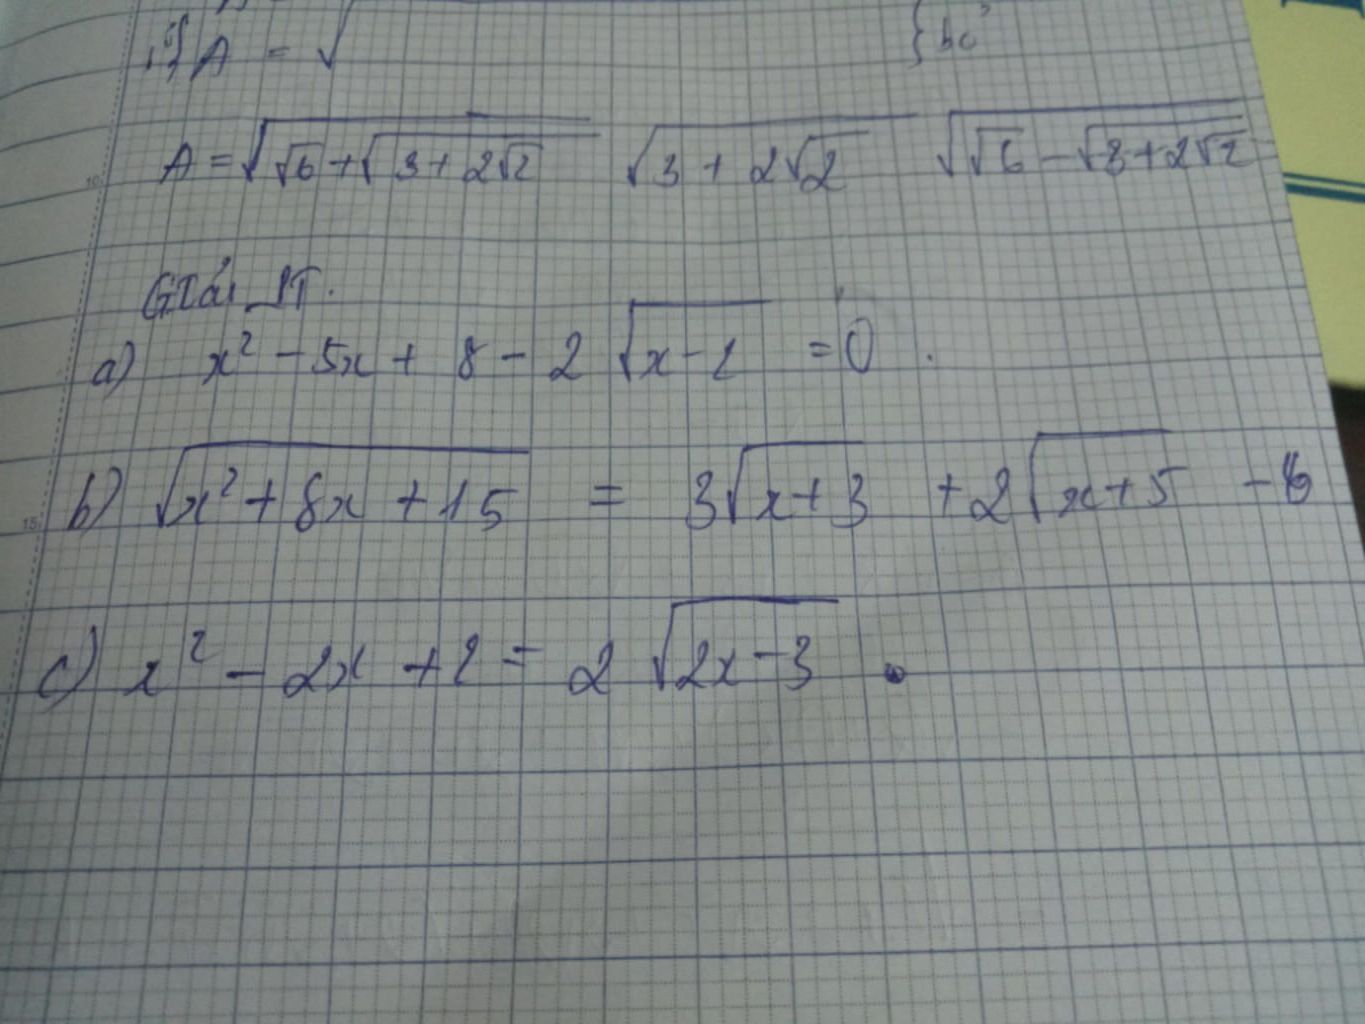 A = √
{ bc
A = √(√6 + √(3 + 2√2)) √(3 + 2√2) √(√6 − √(3 + 2√2))
Giải PT.
a) x² − 5x + 8 − 2√(x − 2) = 0.
b) √(x² + 8x + 15) = 3√(x + 3) + 2√(x + 5) − 6
c) x² − 2x + 2 = 2√(2x − 3).
10
15